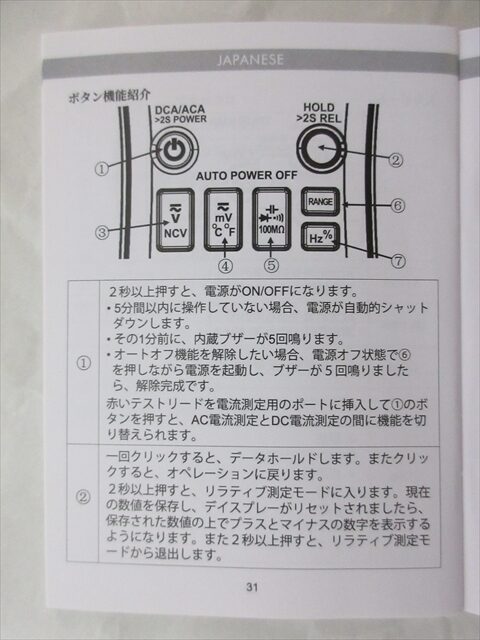 JAPANESE
ボタン機能紹介
DCA/ACA
>2S POWER
HOLD
>2S REL
①
②
AUTO POWER OFF
V
NCV
mV
℃℉
100MΩ
RANGE
Hz%
③
④
⑤
⑥
⑦
①
２秒以上押すと、電源がON/OFFになります。
• 5分間以内に操作していない場合、電源が自動的シャット
ダウンします。
• その1分前に、内蔵ブザーが5回鳴ります。
• オートオフ機能を解除したい場合、電源オフ状態で⑥
を押しながら電源を起動し、ブザーが５回鳴りました
ら、解除完成です。
赤いテストリードを電流測定用のポートに挿入して①のボ
タンを押すと、AC電流測定とDC電流測定の間に機能を切
り替えられます。
②
一回クリックすると、データホールドします。またクリッ
クすると、オペレーションに戻ります。
２秒以上押すと、リラティブ測定モードに入ります。現在
の数値を保存し、デイスプレーがリセットされましたら、
保存された数値の上でプラスとマイナスの数字を表示する
ようになります。また２秒以上押すと、リラティブ測定モ
ードから退出します。
31